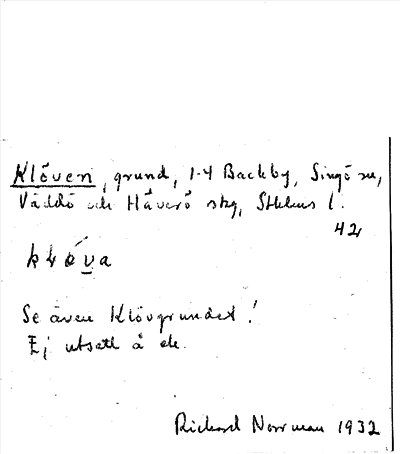 Klöven, grund, 1-4 Backby, Singö sn,
Väddö och Häverö skg, Sthlms l.
42
klöva
Se även Klövgrundet!
Ej utsatt å ek.
Richard Norrman 1932